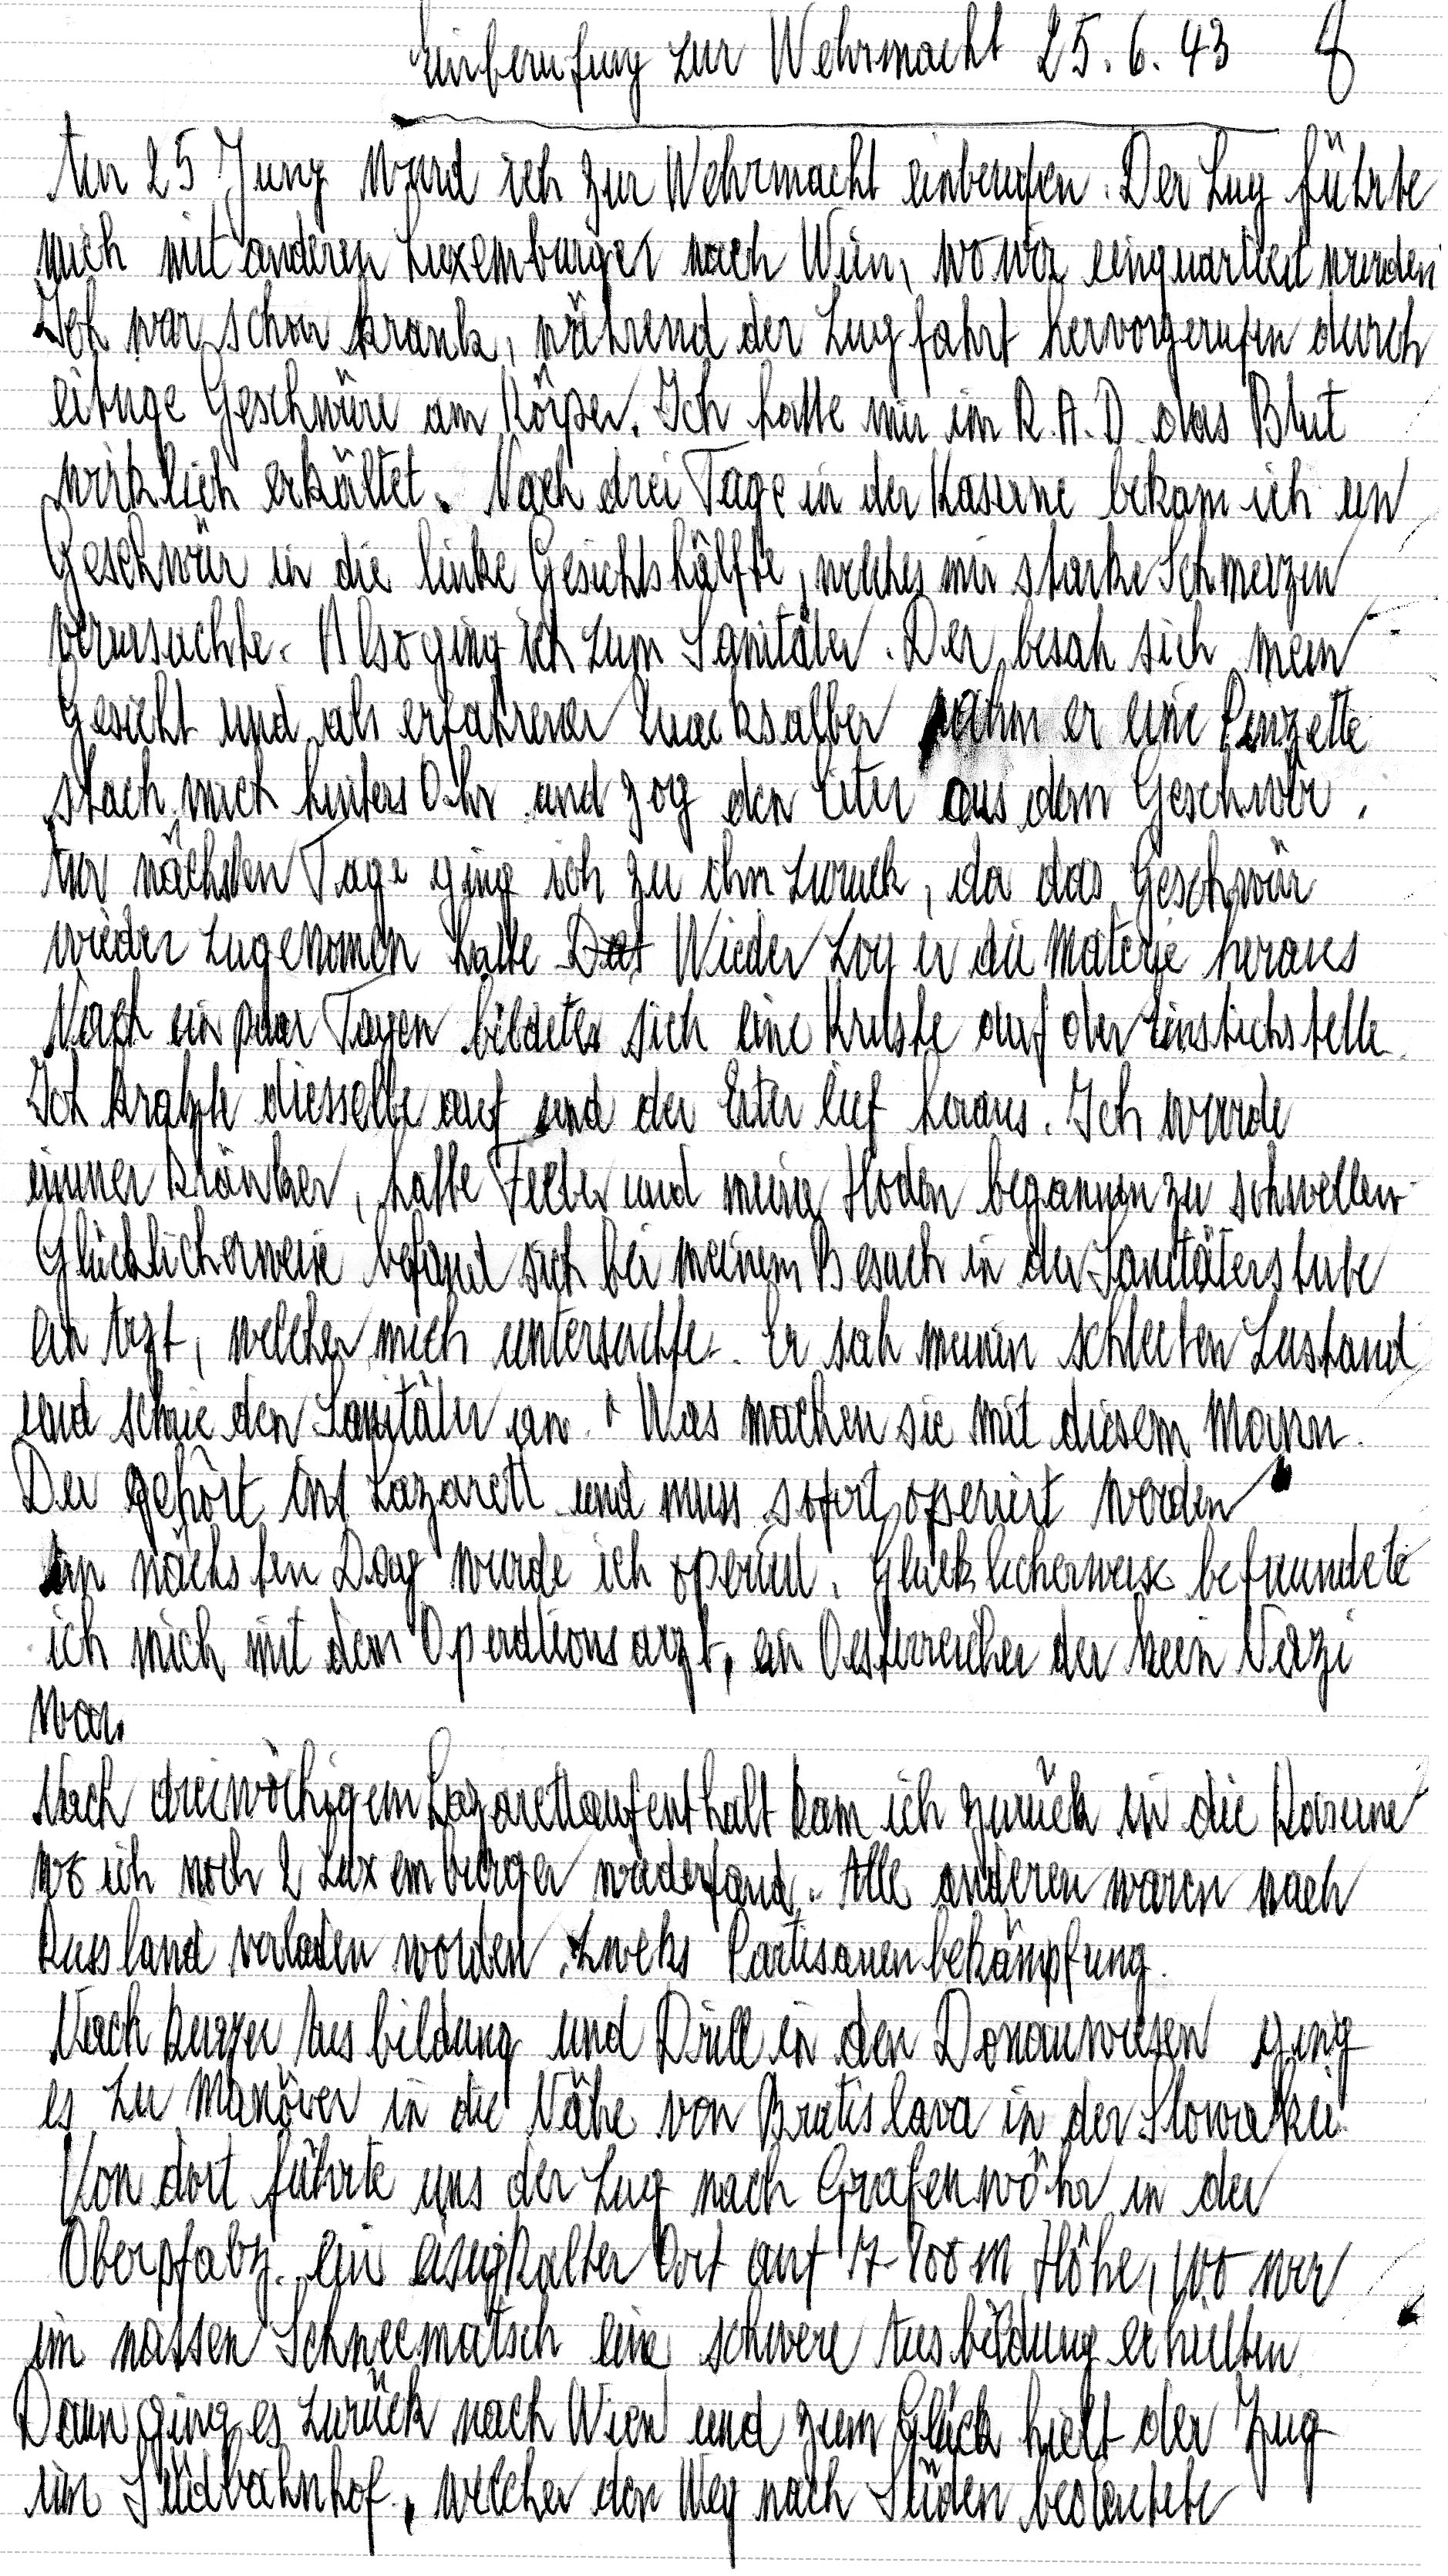 Einberufung zur Wehrmacht 25.6.43 8
Am 25 Juny ward ich zur Wehrmacht einberufen. Der Zug führte
mich mit anderen Luxemburger nach Wien, wo wir einquartiert wurden
Ich war schon krank, während der Zugfahrt hervorgerufen durch
einige Geschwüre am Körper. Ich hatte mir im R.A.D das Blut
wirklich erkältet. Nach drei Tage in der Kaserne bekam ich ein
Geschwür in die linke Gesichtshälfte, welches mir starke Schmerzen
verursachte. Also ging ich zum Sanitäter. Der besah sich mein
Gesicht und als erfahrener Quacksalber nahm er eine Pinzette
stach mich hinters Ohr und zog den Eiter aus dem Geschwür.
Am nächsten Tage ging ich zu ihm zuruck, da das Geschwür
wieder zugenomen hatte Dat Wieder zog er die Materie heraus
Nach ein paar Tagen bildete sich eine Kruste auf der Einstichstelle
Ich kratzte diesselbe auf und der Eiter lief heraus. Ich wurde
immer kränker, hatte Fieber und meine Hoden begannen zu schwellen
Glücklicherweise befand sich bei meinem Besuch in der Sanitäterstube
ein Arzt, welcher mich untersuchte. Er sah meinen schlechten Zustand
und schrie den Sanitäter an " Was machen sie mit diesem Mann
Der gehört ins Lazarett und muss sofort operiert werden "
Am nächsten Dag wurde ich operiert. Glücklicherweise befreundete
ich mich mit dem Operationsarzt, ein Oesterreicher der kein Nazi
war.
Nach dreiwöchigem Lazarettaufenthalt kam ich zurück in die Kaserne
wo ich noch 2 Luxemburger wiederfand. Alle anderen waren nach
Russland verladen worden zweks Partisanenbekämpfung.
Nach kurzer Ausbildung und Drill in den Donauwiesen ging
es zu Manöver in die Nähe von Bratislava in der Slowakei
Von dort führte uns der Zug nach Grafenwöhr in der
Oberpfalz. ein eisigkalter Ort auf 7-800 m Höhe, wo wir
im nassen Schneematsch eine schwere Ausbildung erhielten
Dann ging es zurück nach Wien und zum Glück hielt der Zug
im Südbahnhof, welcher den Weg nach Süden bedeutete